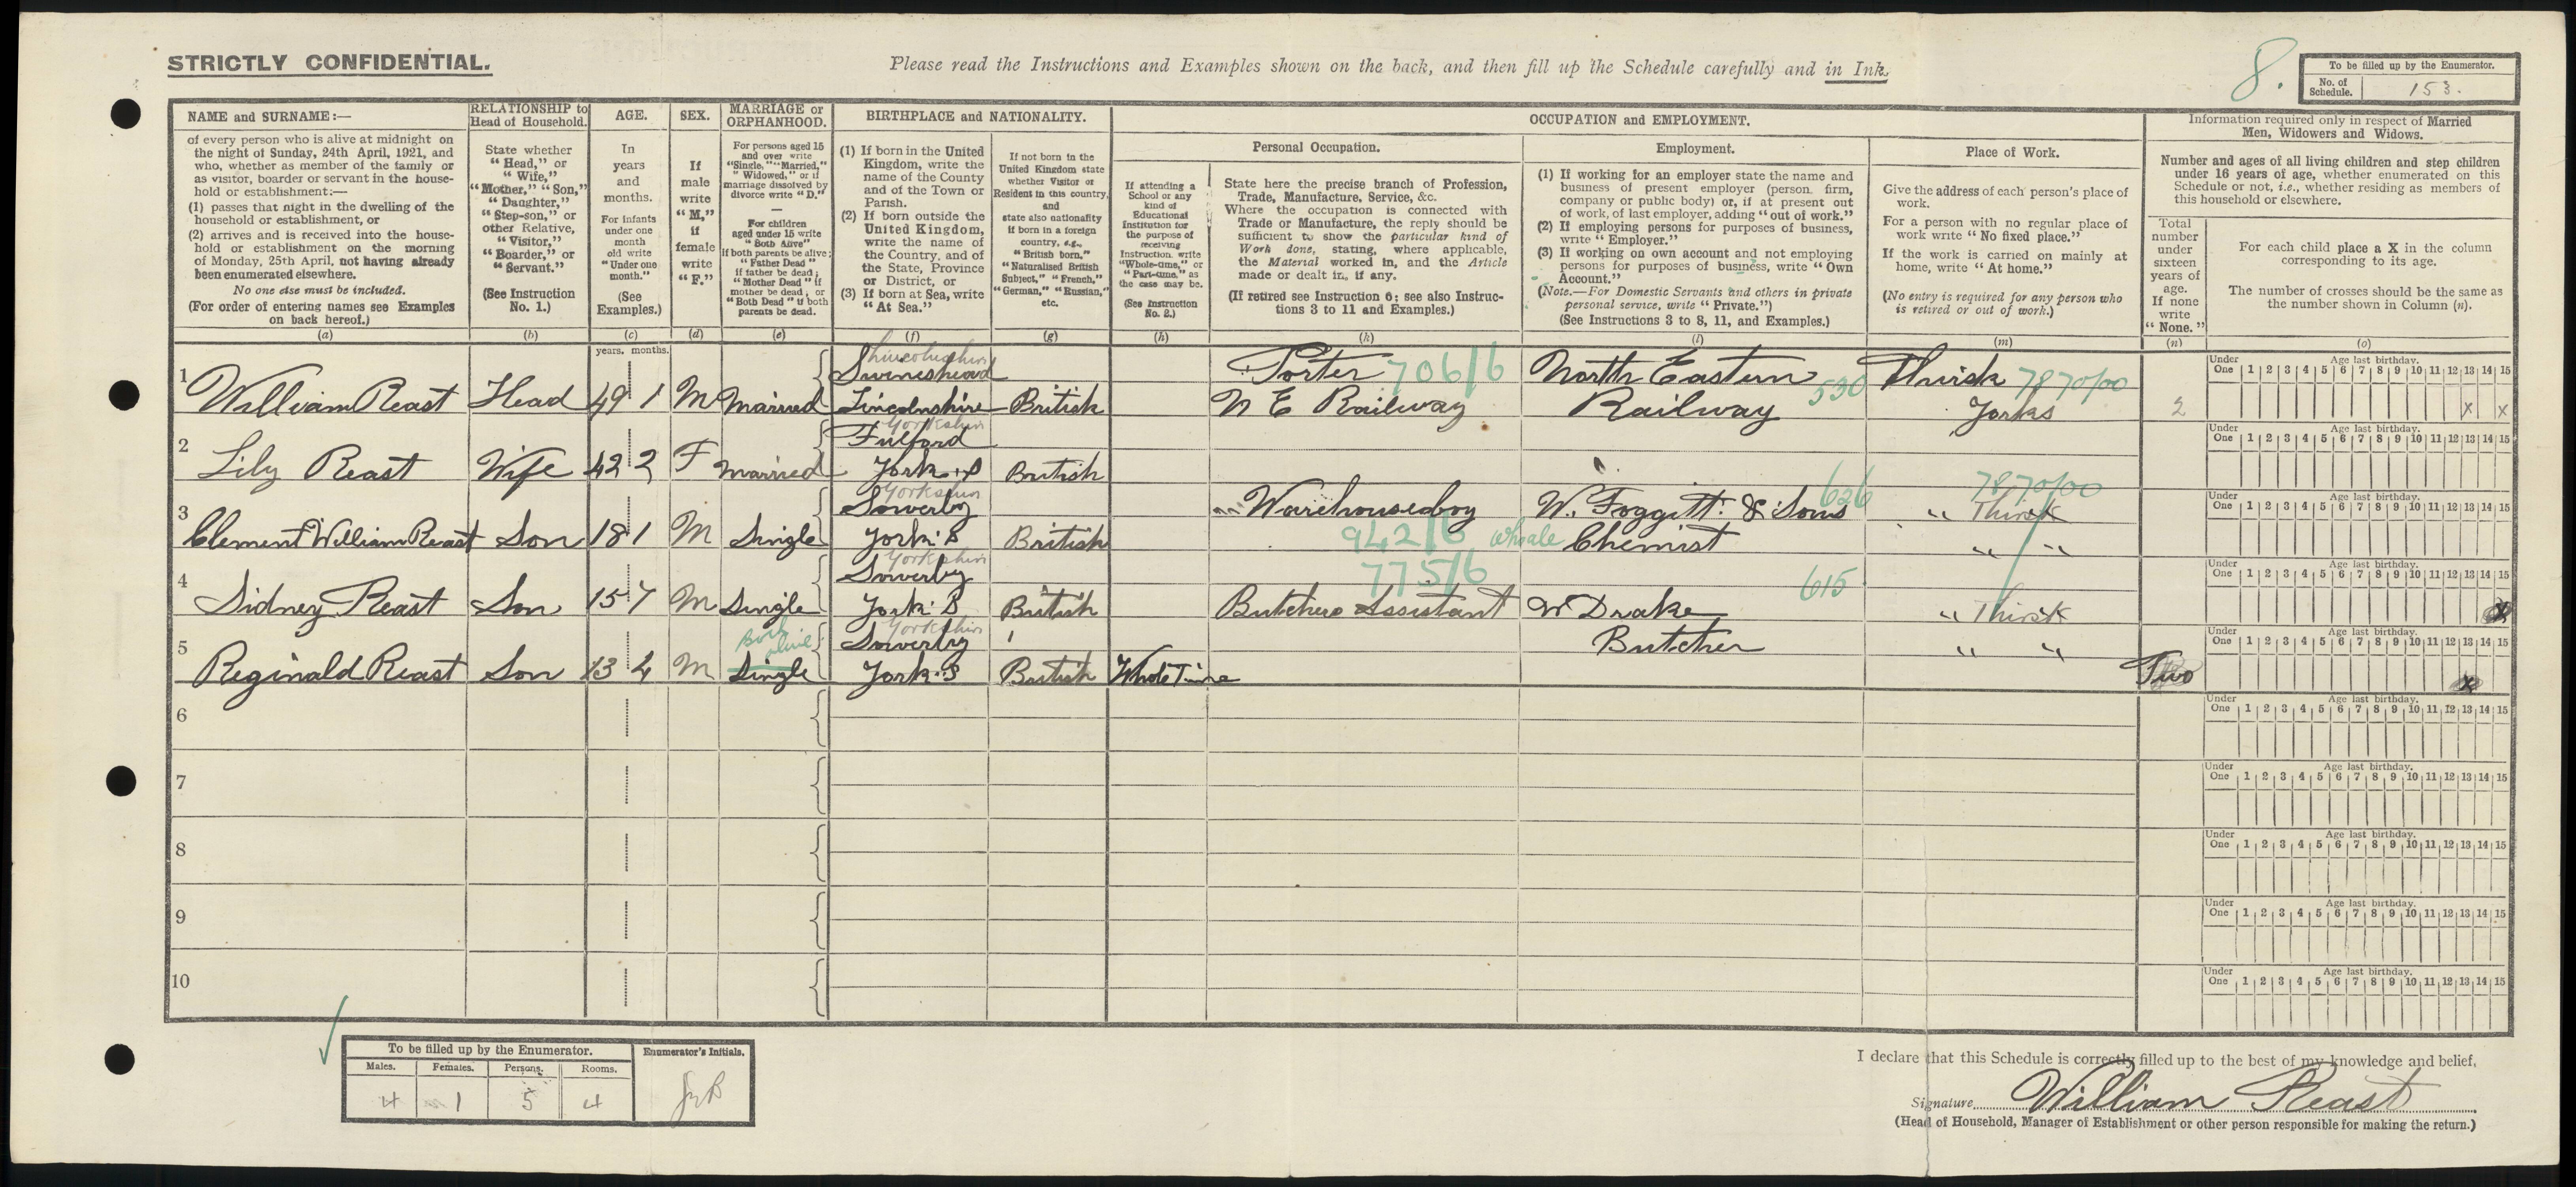 STRICTLY CONFIDENTIAL.
Please read the Instructions and Examples shown on the back, and then fill up the Schedule carefully and in Ink.
8.
To be filled up by the Enumerator.
No. of Schedule. 153.
NAME and SURNAME:—
of every person who is alive at midnight on
the night of Sunday, 24th April, 1921, and
who, whether as member of the family or
as visitor, boarder or servant in the house-
hold or establishment:—
(1) passes that night in the dwelling of the
household or establishment, or
(2) arrives and is received into the house-
hold or establishment on the morning
of Monday, 25th April, not having already
been enumerated elsewhere.
No one else must be included.
(For order of entering names see Examples
on back hereof.)
(a)
RELATIONSHIP to
Head of Household.
State whether
"Head," or
"Wife,"
"Mother," "Son,"
"Daughter,"
"Step-son," or
other Relative,
"Visitor,"
"Boarder," or
"Servant."
(See Instruction
No. 1.)
(b)
AGE.
In
years
and
months.
For infants
under one
month
old write
"Under one
month."
(See
Examples.)
(c)
years. months.
SEX.
If
male
write
"M,"
if
female
write
"F."
(d)
MARRIAGE or
ORPHANHOOD.
For persons aged 15
and over write
"Single," "Married,"
"Widowed," or if
marriage dissolved by
divorce write "D."
—
For children
aged under 15 write
"Both Alive"
if both parents be alive;
"Father Dead"
if father be dead;
"Mother Dead" if
mother be dead; or
"Both Dead" if both
parents be dead.
(e)
BIRTHPLACE and NATIONALITY.
(1) If born in the United
Kingdom, write the
name of the County
and of the Town or
Parish.
(2) If born outside the
United Kingdom,
write the name of
the Country, and of
the State, Province
or District, or
(3) If born at Sea, write
"At Sea."
(f)
If not born in the
United Kingdom state
whether Visitor or
Resident in this country,
and
state also nationality
if born in a foreign
country, e.g.,
"British born,"
"Naturalised British
Subject," "French,"
"German," "Russian,"
etc.
(g)
OCCUPATION and EMPLOYMENT.
If attending a
School or any
kind of
Educational
Institution for
the purpose of
receiving
Instruction, write
"Whole-time," or
"Part-time," as
the case may be.
(See Instruction
No. 2.)
(h)
Personal Occupation.
State here the precise branch of Profession,
Trade, Manufacture, Service, &c.
Where the occupation is connected with
Trade or Manufacture, the reply should be
sufficient to show the particular kind of
Work done, stating, where applicable,
the Material worked in, and the Article
made or dealt in, if any.
(If retired see Instruction 6; see also Instruc-
tions 3 to 11 and Examples.)
(k)
Employment.
(1) If working for an employer state the name and
business of present employer (person, firm,
company or public body) or, if at present out
of work, of last employer, adding "out of work."
(2) If employing persons for purposes of business,
write "Employer."
(3) If working on own account and not employing
persons for purposes of business, write "Own
Account."
(Note.—For Domestic Servants and others in private
personal service, write "Private.")
(See Instructions 3 to 8, 11, and Examples.)
(l)
Place of Work.
Give the address of each person's place of
work.
For a person with no regular place of
work write "No fixed place."
If the work is carried on mainly at
home, write "At home."
(No entry is required for any person who
is retired or out of work.)
(m)
Information required only in respect of Married
Men, Widowers and Widows.
Number and ages of all living children and step children
under 16 years of age, whether enumerated on this
Schedule or not, i.e., whether residing as members of
this household or elsewhere.
Total
number
under
sixteen
years of
age.
If none
write
"None."
(n)
For each child place a X in the column
corresponding to its age.
The number of crosses should be the same as
the number shown in Column (n).
(o)
Lincolnshire
Swineshead Porter 706/6 North Eastern 530 Thirsk 7870/00
1 William Reast Head 49 1 M Married Lincolnshire British N E Railway Railway Yorks 2
Under One 1 2 3 4 5 6 7 8 9 10 11 12 13 14 15 Age last birthday.
x x
Yorkshire
Fulford
2 Lily Reast Wife 42 2 F Married York:S British
Under One 1 2 3 4 5 6 7 8 9 10 11 12 13 14 15 Age last birthday.
Yorkshire
Sowerby Warehouseboy W. Foggitt & Sons 626 " Thirsk 7870/00
3 Clement William Reast Son 18 1 M Single York:S British 942/6 Whsale Chemist " "
Under One 1 2 3 4 5 6 7 8 9 10 11 12 13 14 15 Age last birthday.
Yorkshire
Sowerby 775/6 615
4 Sidney Reast Son 15 7 M Single York:S British Butchers Assistant W Drake " Thirsk x
Under One 1 2 3 4 5 6 7 8 9 10 11 12 13 14 15 Age last birthday.
Both alive Yorkshire
Sowerby Butcher " "
5 Reginald Reast Son 13 4 M Single York:S British Whole Time Two x
Under One 1 2 3 4 5 6 7 8 9 10 11 12 13 14 15 Age last birthday.
6
Under One 1 2 3 4 5 6 7 8 9 10 11 12 13 14 15 Age last birthday.
7
Under One 1 2 3 4 5 6 7 8 9 10 11 12 13 14 15 Age last birthday.
8
Under One 1 2 3 4 5 6 7 8 9 10 11 12 13 14 15 Age last birthday.
9
Under One 1 2 3 4 5 6 7 8 9 10 11 12 13 14 15 Age last birthday.
10
Under One 1 2 3 4 5 6 7 8 9 10 11 12 13 14 15 Age last birthday.
To be filled up by the Enumerator. Enumerator's Initials.
Males. Females. Persons. Rooms.
4 1 5 4
I declare that this Schedule is correctly filled up to the best of my knowledge and belief.
Signature William Reast
(Head of Household, Manager of Establishment or other person responsible for making the return.)